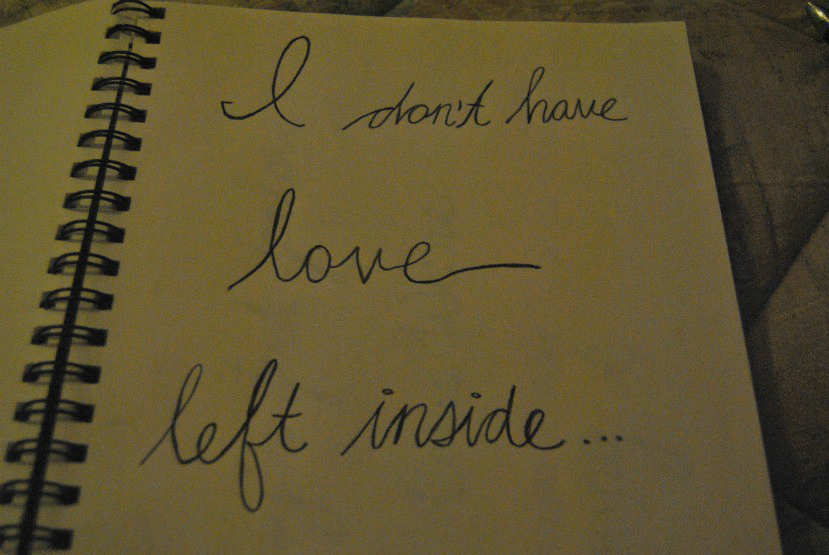 I don't have
love
left inside...